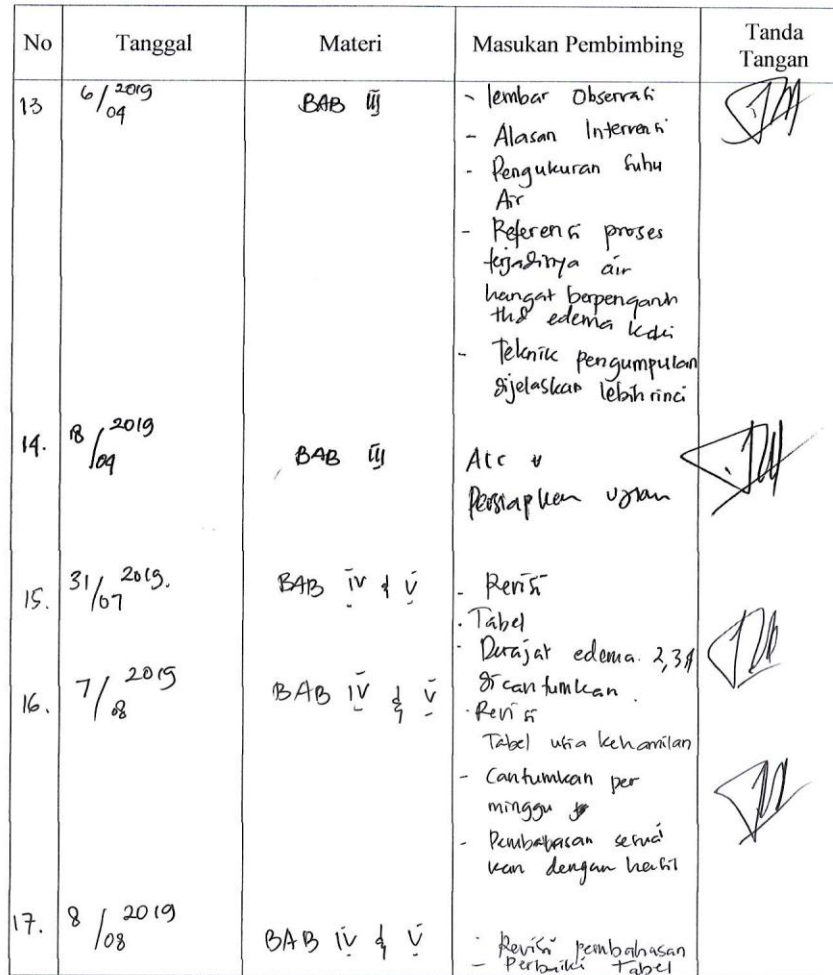 No Tanggal Materi Masukan Pembimbing Tanda Tangan
13 6/04 2019 BAB III - lembar Observasi
- Alasan Intervensi
- Pengukuran Suhu
Air
- Referensi proses
terjadinya air
hangat berpengaruh
thd edema kaki
- Teknik pengumpulan
dijelaskan lebih rinci
14. 18/04 2019 BAB III Acc
Persiapkan ujian
15. 31/07 2019. BAB IV & V - Revisi
- Tabel
- Derajat edema 2,3
dicantumkan.
16. 7/08 2019 BAB IV & V - Revisi
Tabel usia kehamilan
- Cantumkan per
minggu
- Pembahasan sesuai
kan dengan hasil
17. 8/08 2019 BAB IV & V - Revisi pembahasan
- Perbaiki Tabel